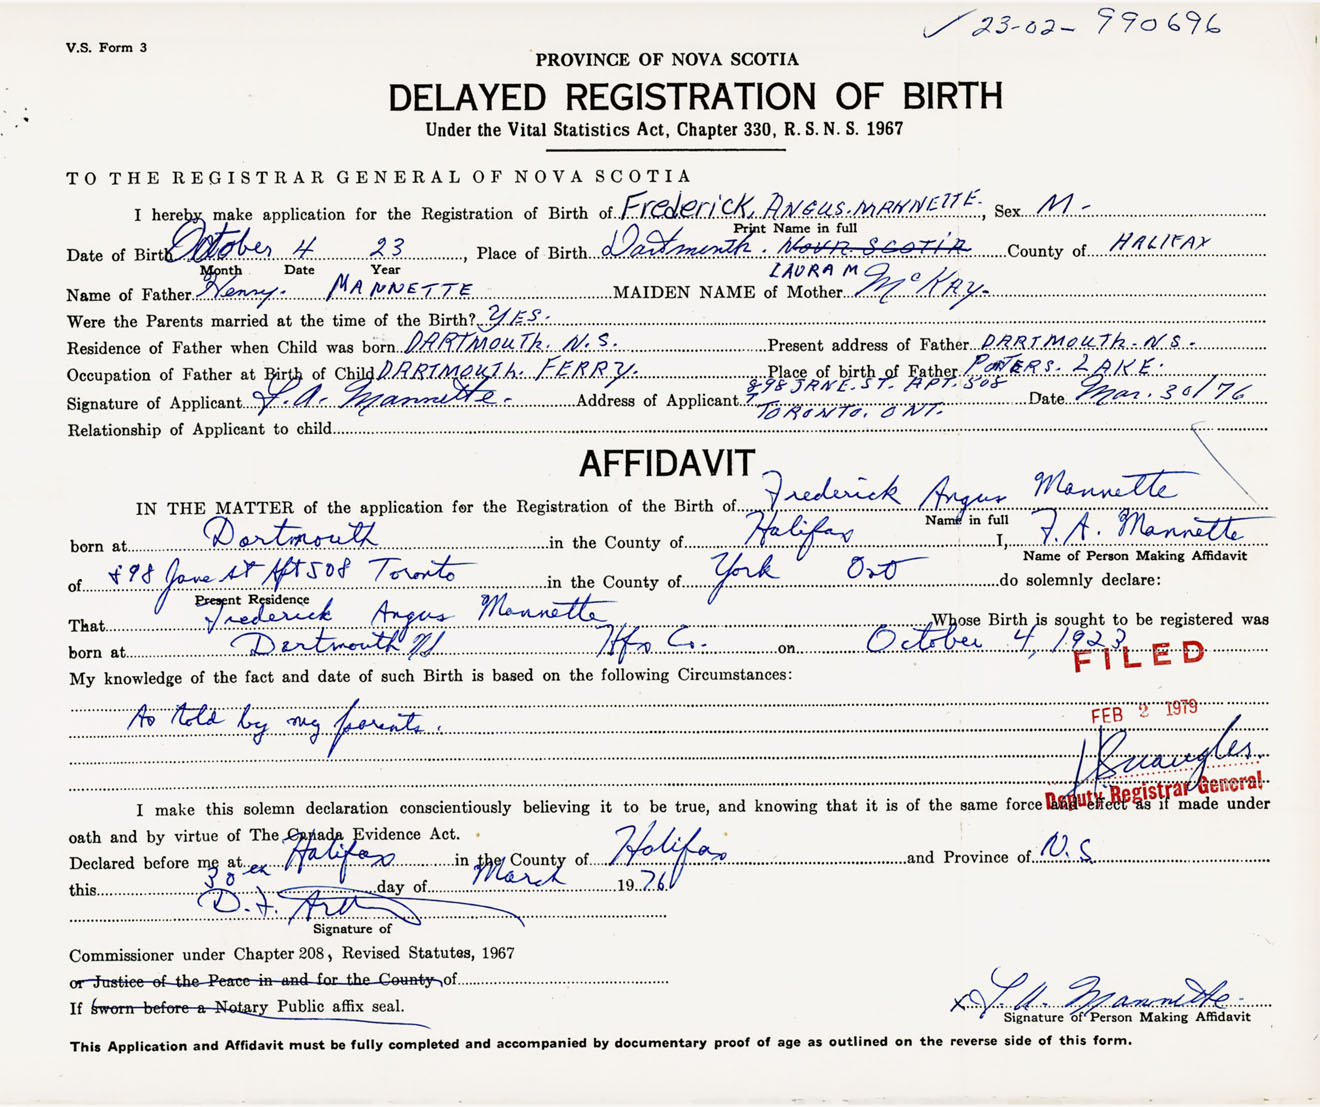 ✓ 23-02-990696
V.S. Form 3
PROVINCE OF NOVA SCOTIA
DELAYED REGISTRATION OF BIRTH
Under the Vital Statistics Act, Chapter 330, R. S. N. S. 1967
TO THE REGISTRAR GENERAL OF NOVA SCOTIA
I hereby make application for the Registration of Birth of Frederick, ANGUS. MANNETTE. , Sex M.
Print Name in full
Date of Birth October 4 23 , Place of Birth Dartmouth . NOVA SCOTIA County of HALIFAX
Month Date Year
LAURA M
Name of Father Henry. MANNETTE MAIDEN NAME of Mother McKAY.
Were the Parents married at the time of the Birth? YES.
Residence of Father when Child was born DARTMOUTH. N.S. Present address of Father DARTMOUTH - N.S.
Occupation of Father at Birth of Child DARTMOUTH. FERRY. Place of birth of Father PORTERS. LAKE.
898 JANE. ST. APT. 508
Signature of Applicant F. A. Mannette. Address of Applicant TORONTO. ONT. Date Mar. 30/76
Relationship of Applicant to child
AFFIDAVIT
IN THE MATTER of the application for the Registration of the Birth of Frederick Angus Mannette
Name in full
born at Dartmouth in the County of Halifax I, F. A. Mannette
Name of Person Making Affidavit
of 898 Jane St Apt 508 Toronto in the County of York Ont do solemnly declare:
Present Residence
That Frederick Angus Mannette Whose Birth is sought to be registered was
born at Dartmouth NS Hfx Co. on October 4, 1923
FILED
My knowledge of the fact and date of such Birth is based on the following Circumstances:
As told by my parents.
FEB 2 1979
Deputy Registrar General
I make this solemn declaration conscientiously believing it to be true, and knowing that it is of the same force and effect as if made under
oath and by virtue of The Canada Evidence Act.
Declared before me at Halifax in the County of Halifax and Province of N.S.
this 30 day of March 1976
D. F.
Signature of
Commissioner under Chapter 208, Revised Statutes, 1967
or Justice of the Peace in and for the County of
If sworn before a Notary Public affix seal.
x F. A. Mannette
Signature of Person Making Affidavit
This Application and Affidavit must be fully completed and accompanied by documentary proof of age as outlined on the reverse side of this form.